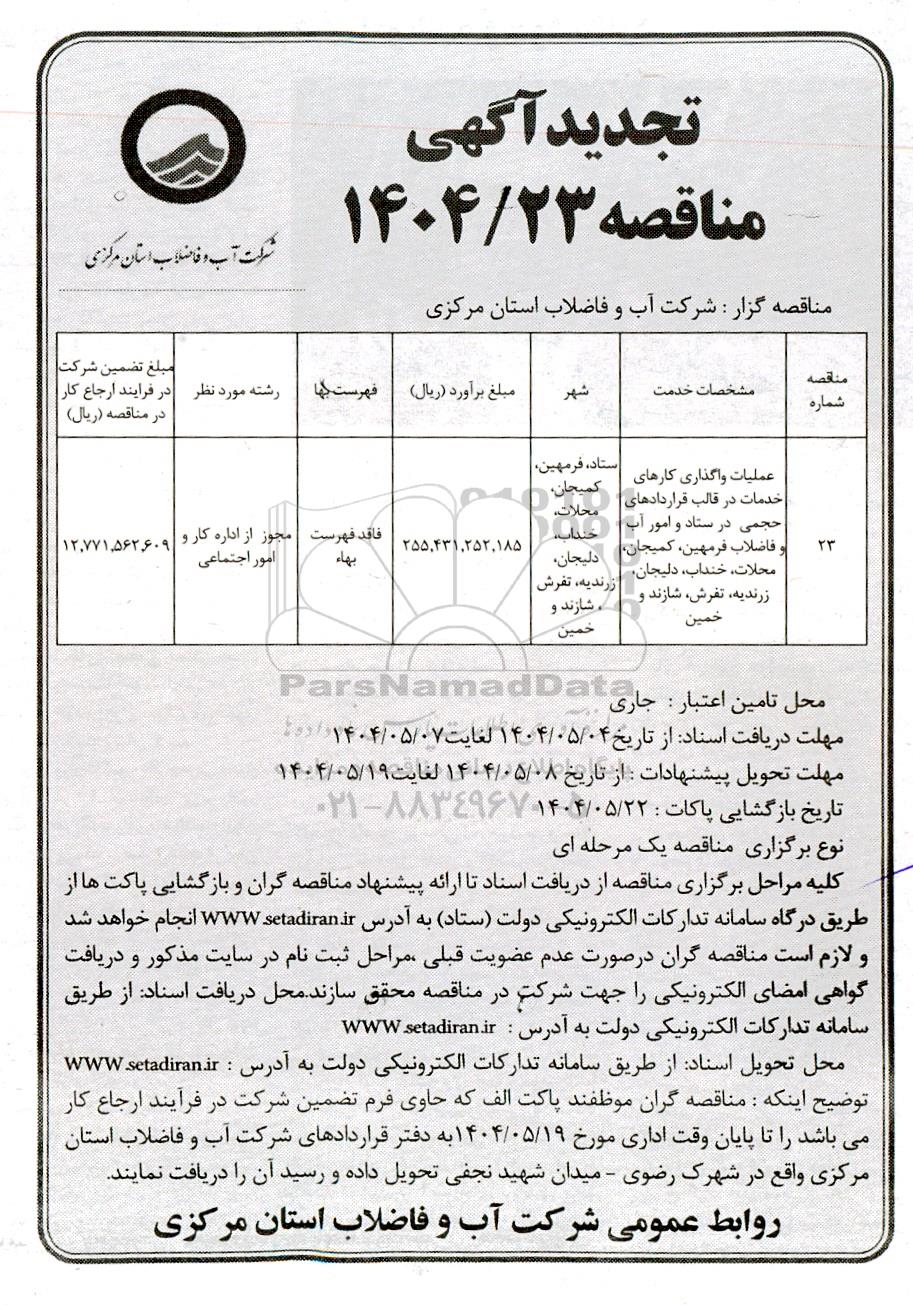 تجدید آگهی
مناقصه ۱۴۰۴/۲۳
شرکت آب و فاضلاب استان مرکزی
مناقصه گزار : شرکت آب و فاضلاب استان مرکزی
مناقصه شماره
مشخصات خدمت
شهر
مبلغ برآورد (ریال)
فهرست بها
رشته مورد نظر
مبلغ تضمین شرکت
در فرایند ارجاع کار
در مناقصه (ریال)
۲۳
عملیات واگذاری کارهای
خدمات در قالب قراردادهای
حجمی در ستاد و امور آب
و فاضلاب فرمهین، کمیجان،
محلات، خنداب، دلیجان،
زرندیه، تفرش، شازند و
خمین
ستاد، فرمهین،
کمیجان،
محلات،
خنداب،
دلیجان،
زرندیه، تفرش
، شازند و
خمین
۲۵۵,۴۳۱,۲۵۲,۱۸۵
فاقد فهرست
بهاء
مجوز از اداره کار و
امور اجتماعی
۱۲,۷۷۱,۵۶۲,۶۰۹
ParsNamadData
۰۲۱-۸۸۳۴۹۶۷۰-۵
محل تامین اعتبار : جاری
مهلت دریافت اسناد: از تاریخ ۱۴۰۴/۰۵/۰۴ لغایت ۱۴۰۴/۰۵/۰۷
مهلت تحویل پیشنهادات : از تاریخ ۱۴۰۴/۰۵/۰۸ لغایت ۱۴۰۴/۰۵/۱۹
تاریخ بازگشایی پاکات : ۱۴۰۴/۰۵/۲۲
نوع برگزاری مناقصه یک مرحله ای
کلیه مراحل برگزاری مناقصه از دریافت اسناد تا ارائه پیشنهاد مناقصه گران و بازگشایی پاکت ها از
طریق درگاه سامانه تدارکات الکترونیکی دولت (ستاد) به آدرس WWW.setadiran.ir انجام خواهد شد
و لازم است مناقصه گران درصورت عدم عضویت قبلی ،مراحل ثبت نام در سایت مذکور و دریافت
گواهی امضای الکترونیکی را جهت شرکت در مناقصه محقق سازند.محل دریافت اسناد: از طریق
سامانه تدارکات الکترونیکی دولت به آدرس : WWW.setadiran.ir
محل تحویل اسناد: از طریق سامانه تدارکات الکترونیکی دولت به آدرس : WWW.setadiran.ir
توضیح اینکه : مناقصه گران موظفند پاکت الف که حاوی فرم تضمین شرکت در فرآیند ارجاع کار
می باشد را تا پایان وقت اداری مورخ ۱۴۰۴/۰۵/۱۹به دفتر قراردادهای شرکت آب و فاضلاب استان
مرکزی واقع در شهرک رضوی - میدان شهید نجفی تحویل داده و رسید آن را دریافت نمایند.
روابط عمومی شرکت آب و فاضلاب استان مرکزی